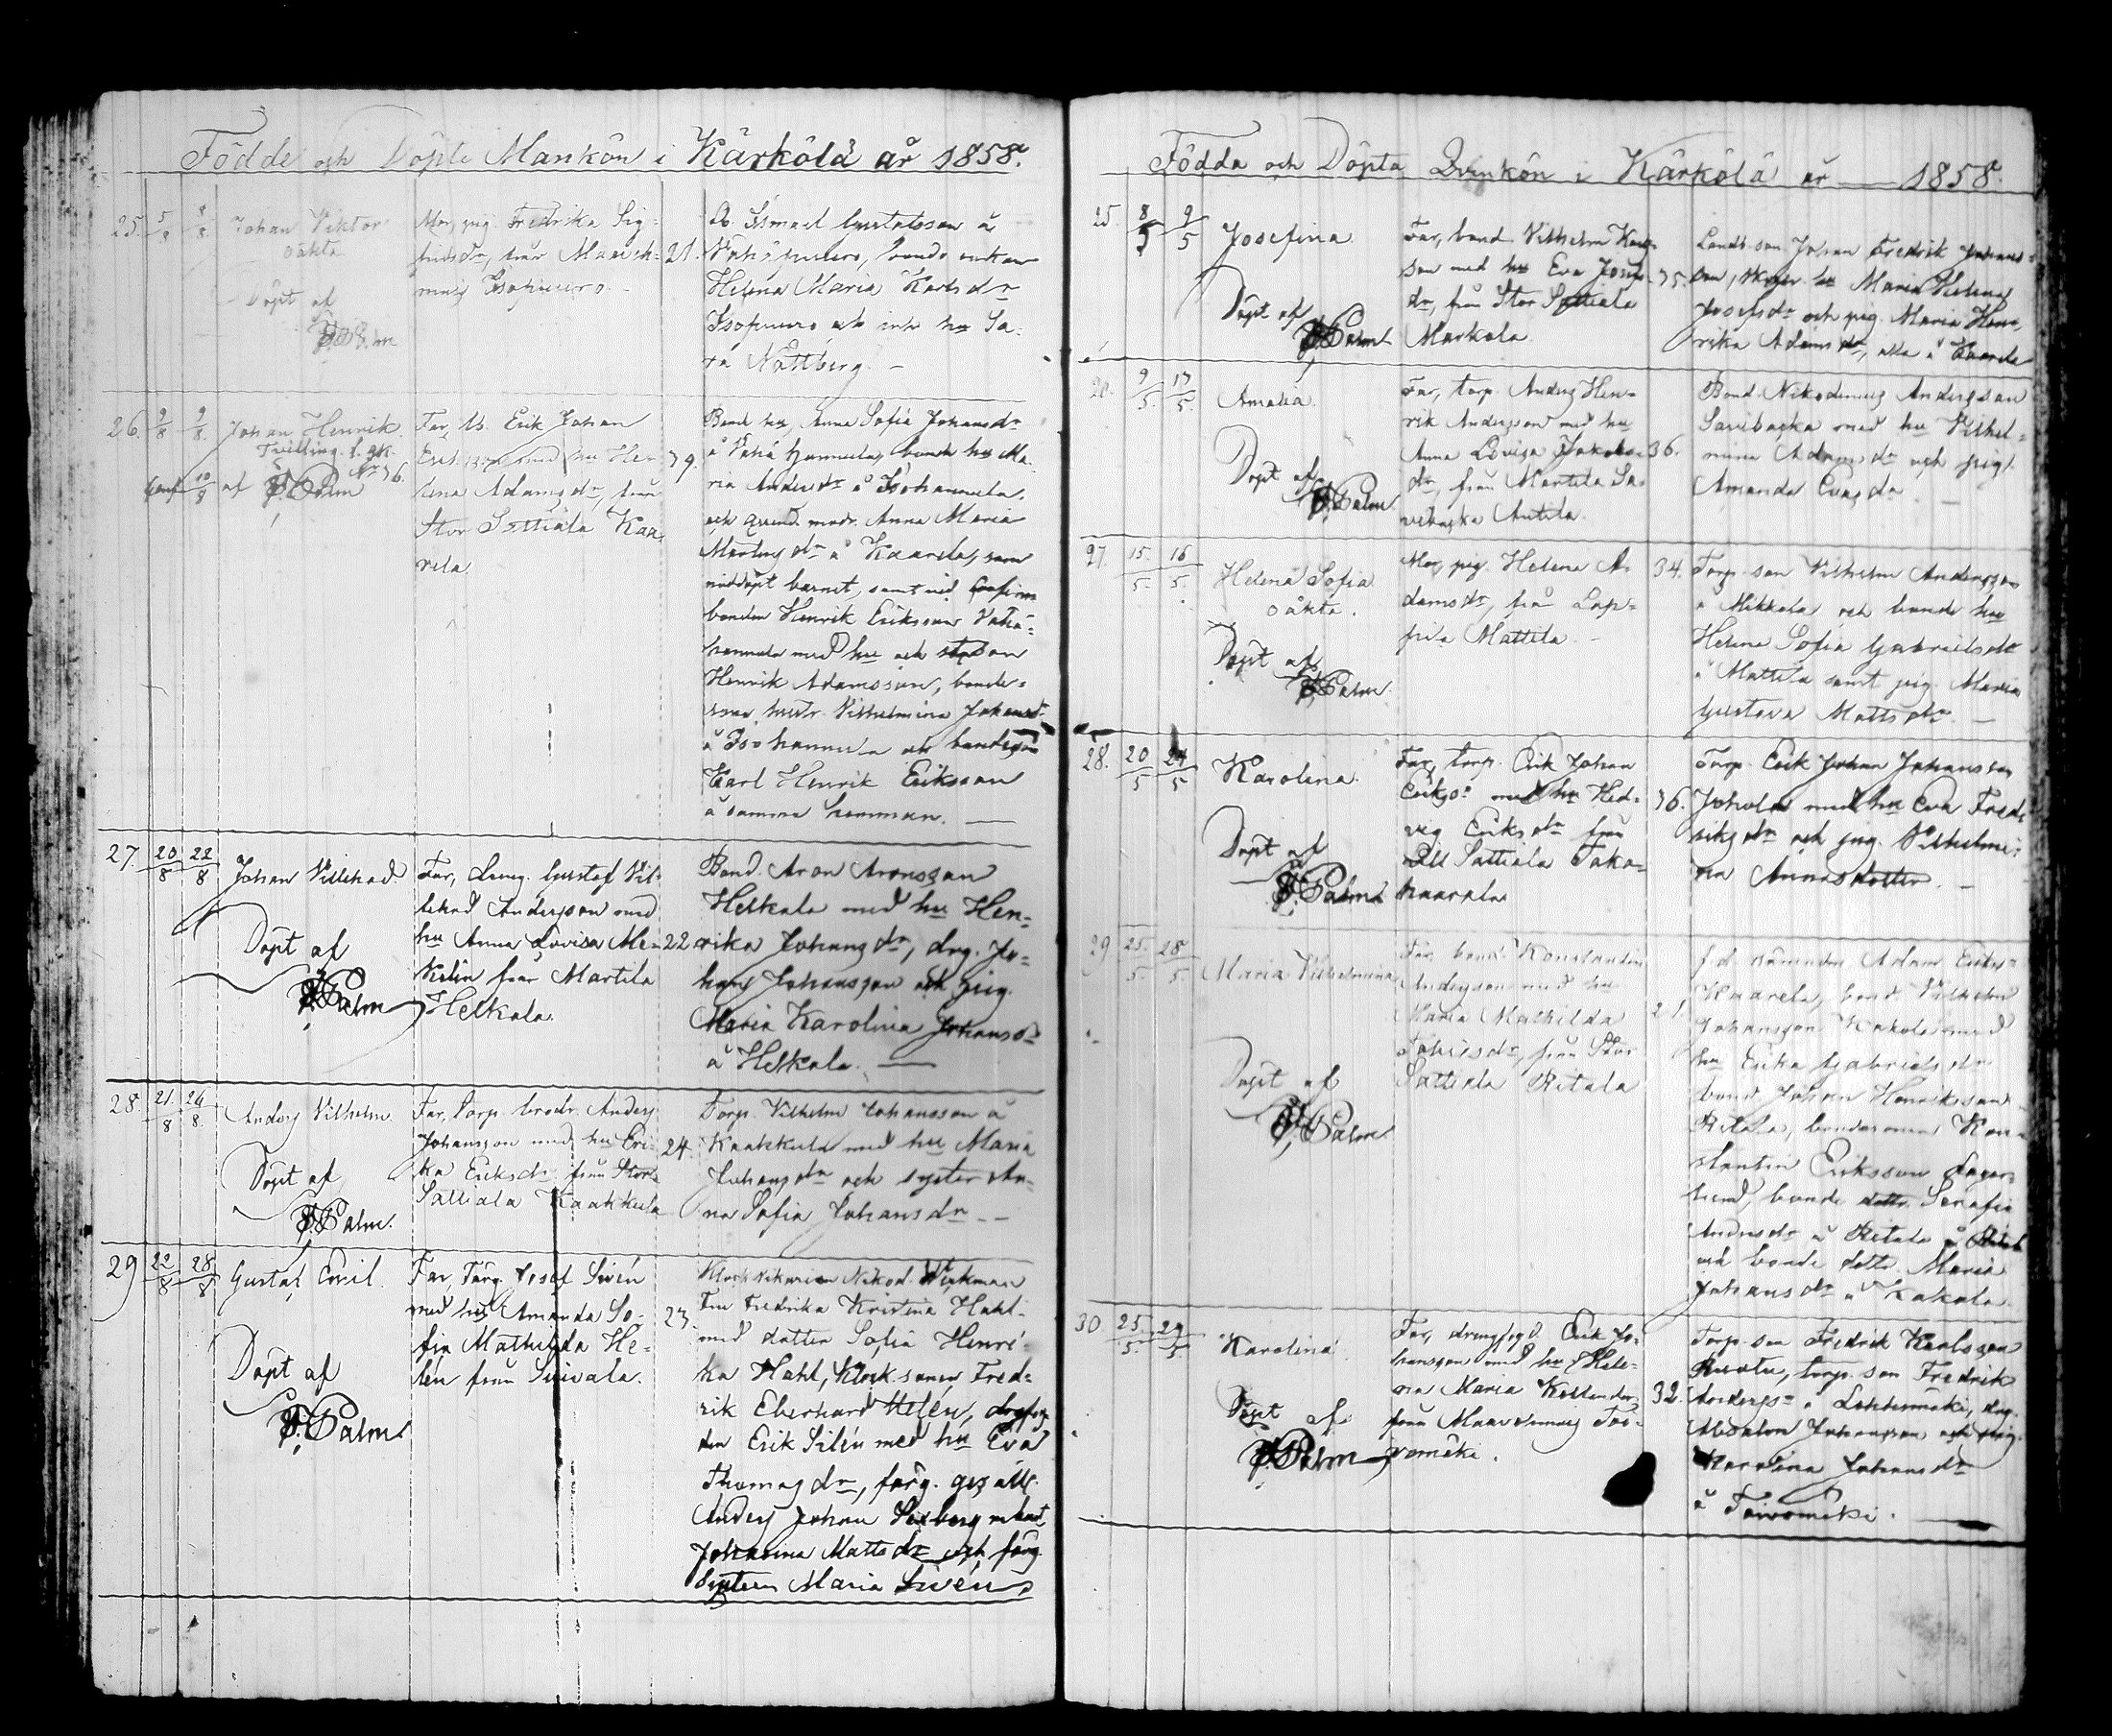 Födde och Döpte Mankön i Kärkölä år 1858.
25. 5/8 8/8 Johan Viktor
oäkta
Döpt af
Palm
Mor, pig. Fredrika Sig-
fridsdr, från Maaveh-
maa Isopuuro
21.
Dr. Ismael Gustafsson å
Vähäpuuro, bonde enkan
Helena Maria Karlsdr
Isopuuro och inh. hu Sa-
ra Nättberg. –
26. 9/8 9/8 Johan Henrik.
Tvilling. f. qk.
No 36.
Conf. 10/8 af Palm
Far, b. Erik Johan
Eriksson med hu He-
lena Adamsdr, från
Stor Sattiala Kaa-
rela.
39.
Bond. hu, Anna Sofia Johansdr
å Vähä Hannula, bonde hu Ma-
ria Andersdr å Isohannula,
och qvind. modr. Anna Maria
Mårtensdr å Kaarela, som
nöddöpt barnet, samt vid Confirm
bonden Henrik Eriksson Vähä-
hannula med hu och son
Henrik Adamsson, bonde-
sons hustr. Vilhelmina Johansdr
å Isohannula och bondeson
Karl Henrik Eriksson
å samma hemman. —
27. 20/8 22/8 Johan Villehad.
Döpt af
Palm
Far, dreng. Gustaf Vil-
lehad Andersson med
hu Anna Lovisa Me-
kelin från Martila
Helkala.
22.
Bond. Aron Aronsson
Helkala med hu Hen-
rika Johansdr, dreg. Jo-
hans Johansson och pig.
Maria Karolina Johansdr
å Helkala. —
28. 21/8 24/8. Anders Vilhelm.
Döpt af
Palm.
Far, Torp. brodr. Anders
Johansson med hu Eri-
ka Eriksdr från Stor
Sattiala Kaakkula
24.
Torp. Vilhelm Johansson å
Kaakkula med hu Maria
Johansdr och syster An-
na Sofia Johansdr. –
29 22/8 28/8 Gustaf Emil.
Döpt af
Palm
Far, Färg. Josef Sivén
med hu Amanda So-
fia Mathilda He-
lén från
23.
Klock vikarien Nikod. Werkman
Fru Fredrika Kristina Hahl
med dotter Sofia Henri-
ka Hahl, Klock. sonen Fred-
rik Eberhard Helén, drgfog-
den Erik Silén med hu Eva
Thomasdr, färg. gesäll.
Anders Johan Sexberg m hust
Johanna Mattsdr och färg.
Systern Maria Sivén
Födda och Döpta Qvinkön i Kärkölä år — 1858
25. 8/5 9/5 Josefina.
Döpt af
Palm
Far, bond. Vilhelm Karls-
son med hu Eva Josefs-
dr, från Stor Sattiala
Markola.
35.
Landb. son Johan Fredrik Johans-
son, hu Maria Helena
Josefsdr och pig. Maria Hen-
rika Adamsdr, alla å Kaarela
26. 9/5. 13/5. Amalia.
Döpt af
Palm.
Far, torp. Anders Hen-
rik Andersson med hu
Anna Lovisa Jakobs-
dr, från Martila Sa-
vibacka Antila.
36.
Bond. Nikodemus Andersson
Savibacka med hu Vilhel-
mina Adamsdr och pig.
Amanda Evasdr. —
27. 15./5. 16/5. Helena Sofia
oäkta.
Döpt af
Palm.
Mor, pig. Helena A-
damsdr, från Lap-
pila Mattila. –
34.
Torp. son Vilhelm Andersson
å Mikkola och bonde hu
Helena Sofia Gabrielsdr
å Mattila samt pig. Maria
Gustava Mattsdr. —
28. 20/5 24/5 Karolina.
Döpt af
Palm
Far, torp. Erik Johan
Eriksson med hu Hed-
vig Eriksdr från
Lill Sattiala Taka-
kaarela
36.
Torp. Erik Johan Johansson
Johola med hu Eva Fred-
riksdr och pig. Vilhelmi-
na Annasdotter. –
29 25./5. 28/5 Maria Vilhelmina
Döpt af
Palm.
Far, bond. Konstantin
Andersson med hu
Maria Mathilda
Johansdr, från Stor
Sattiala Ritala
f.d. nämndm Adam Eriks-
Kaarela, bond. Vilhelm
Johansson Kakola med
hu Erika Gabrielsdr
bond. Johan Henriksson
Ritala, bondesonen Kon-
stantin Eriksson Lager-
bonde dottr Serafia
Andersdr å Ritala
och bonde dottr. Maria
Johansdr å Kakola.
30 25./5. 29/5. Karolina.
Döpt af
Palm
Far, drengfogd. Erik Jo-
hansson med hu Hele-
na Maria
från Maavehmaa Toi-
vomäki.
32.
Torp. son Fredrik Karlsson
torp. son Fredrik
Anderss: å Lehtimäki, drg.
Absalon Johansson och pig.
Karolina Johansdr
å Toivomäki. —